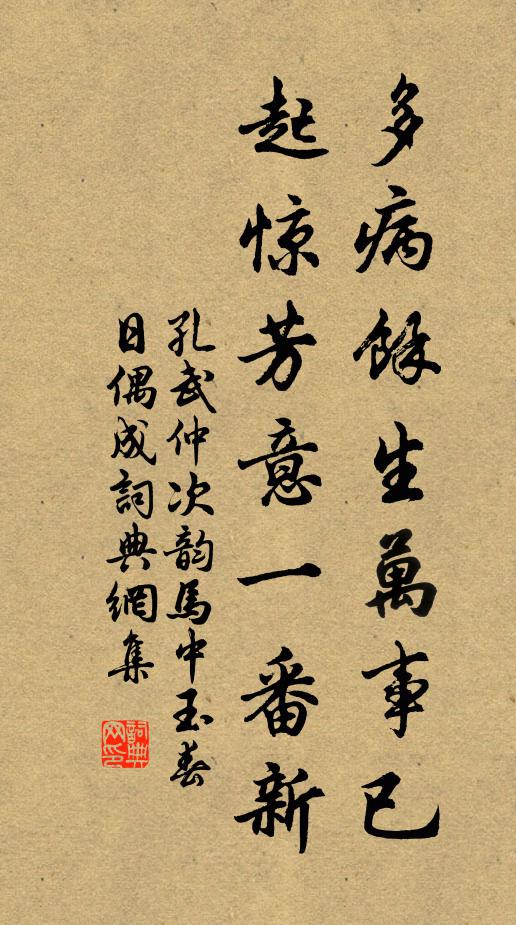 多病餘生萬事已
起惊芳意一番新
孔武仲次韵馬中玉春
日偶成詞典網集
詞典网印